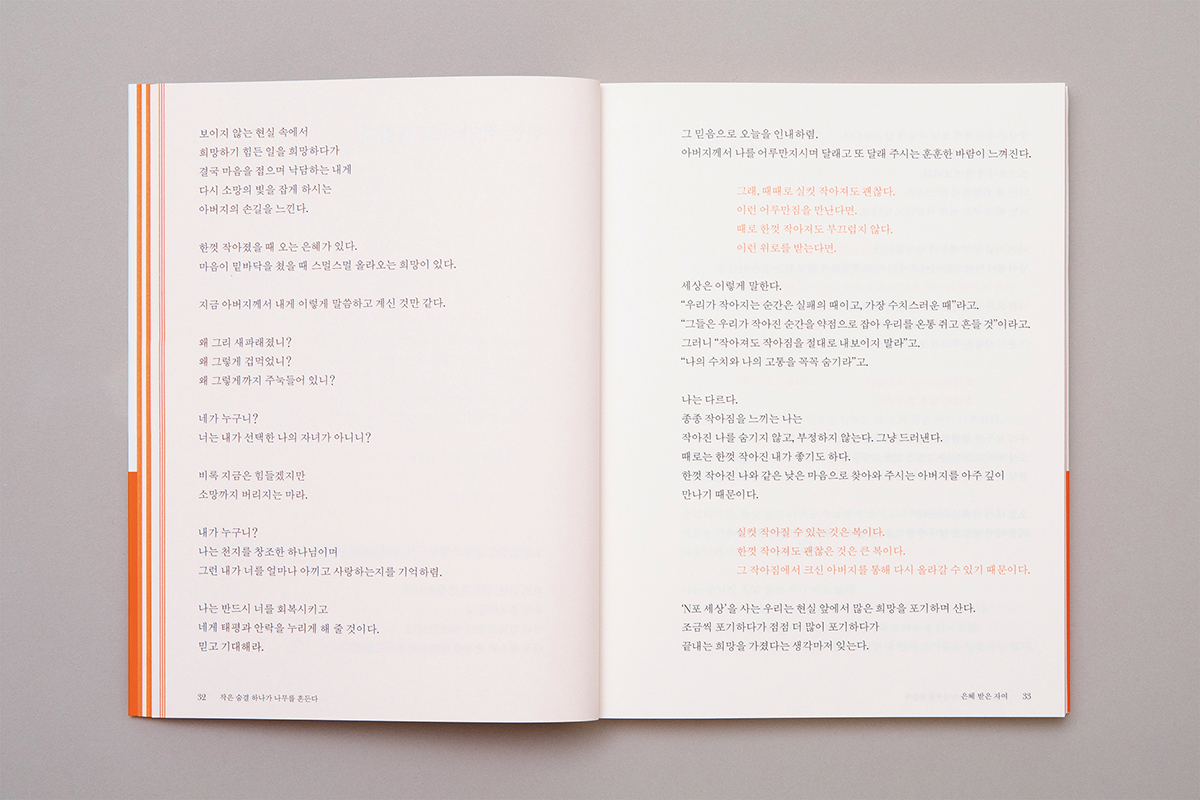 보이지 않는 현실 속에서
희망하기 힘든 일을 희망하다가
결국 마음을 접으며 낙담하는 내게
다시 소망의 빛을 잡게 하시는
아버지의 손길을 느낀다.
한껏 작아졌을 때 오는 은혜가 있다.
마음이 밑바닥을 쳤을 때 스멀스멀 올라오는 희망이 있다.
지금 아버지께서 내게 이렇게 말씀하고 계신 것만 같다.
왜 그리 새파래졌니?
왜 그렇게 겁먹었니?
왜 그렇게까지 주눅들어 있니?
네가 누구니?
너는 내가 선택한 나의 자녀가 아니니?
비록 지금은 힘들겠지만
소망까지 버리지는 마라.
내가 누구니?
나는 천지를 창조한 하나님이며
그런 내가 너를 얼마나 아끼고 사랑하는지를 기억하렴.
나는 반드시 너를 회복시키고
네게 태평과 안락을 누리게 해 줄 것이다.
믿고 기대해라.
32 작은 숨결 하나가 나무를 흔든다
그 믿음으로 오늘을 인내하렴.
아버지께서 나를 어루만지시며 달래고 또 달래 주시는 훈훈한 바람이 느껴진다.
그래, 때때로 실컷 작아져도 괜찮다.
이런 어루만짐을 만난다면.
때로 한껏 작아져도 부끄럽지 않다.
이런 위로를 받는다면.
세상은 이렇게 말한다.
“우리가 작아지는 순간은 실패의 때이고, 가장 수치스러운 때”라고.
“그들은 우리가 작아진 순간을 약점으로 잡아 우리를 온통 쥐고 흔들 것”이라고.
그러니 “작아져도 작아짐을 절대로 내보이지 말라”고.
“나의 수치와 나의 고통을 꼭꼭 숨기라”고.
나는 다르다.
종종 작아짐을 느끼는 나는
작아진 나를 숨기지 않고, 부정하지 않는다. 그냥 드러낸다.
때로는 한껏 작아진 내가 좋기도 하다.
한껏 작아진 나와 같은 낮은 마음으로 찾아와 주시는 아버지를 아주 깊이
만나기 때문이다.
실컷 작아질 수 있는 것은 복이다.
한껏 작아져도 괜찮은 것은 큰 복이다.
그 작아짐에서 크신 아버지를 통해 다시 올라갈 수 있기 때문이다.
‘N포 세상’을 사는 우리는 현실 앞에서 많은 희망을 포기하며 산다.
조금씩 포기하다가 점점 더 많이 포기하다가
끝내는 희망을 가졌다는 생각마저 잊는다.
은혜 받은 자여 33